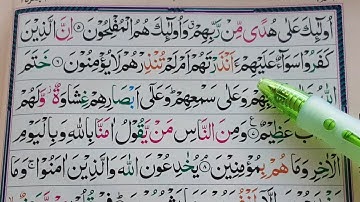 اُولٰٓئِكَ عَلٰى هُدًى مِّنْ رَّبِّهِمْ ۙ وَاُولٰٓئِكَ هُمُ الْمُفْلِحُوْنَ ۝۵ اِنَّ الَّذِيْنَ
كَفَرُوْا سَوَآءٌ عَلَيْهِمْ ءَاَنْذَرْتَهُمْ اَمْ لَمْ تُنْذِرْهُمْ لَا يُؤْمِنُوْنَ ۝۶ خَتَمَ
وَعَلٰى سَمْعِهِمْ ؕ وَعَلٰٓى اَبْصَارِهِمْ غِشَاوَةٌ ؗ وَّلَهُمْ
عَظِيْمٌ ۝۷ وَمِنَ النَّاسِ مَنْ يَّقُوْلُ اٰمَنَّا بِاللّٰهِ وَبِالْيَوْمِ
الْاٰخِرِ وَمَا هُمْ بِمُؤْمِنِيْنَ ۝۸ يُخٰدِعُوْنَ اللّٰهَ وَالَّذِيْنَ اٰمَنُوْا ۚ وَمَا